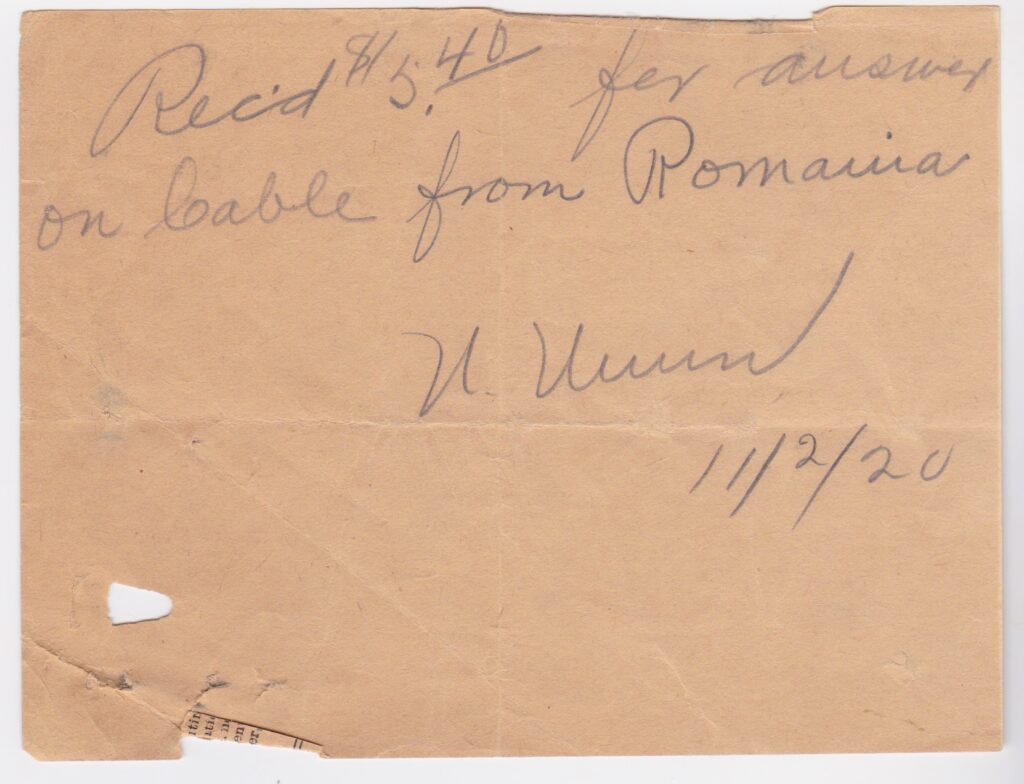 Rec'd $5.40 for answer
on Cable from Romania
11/2/20